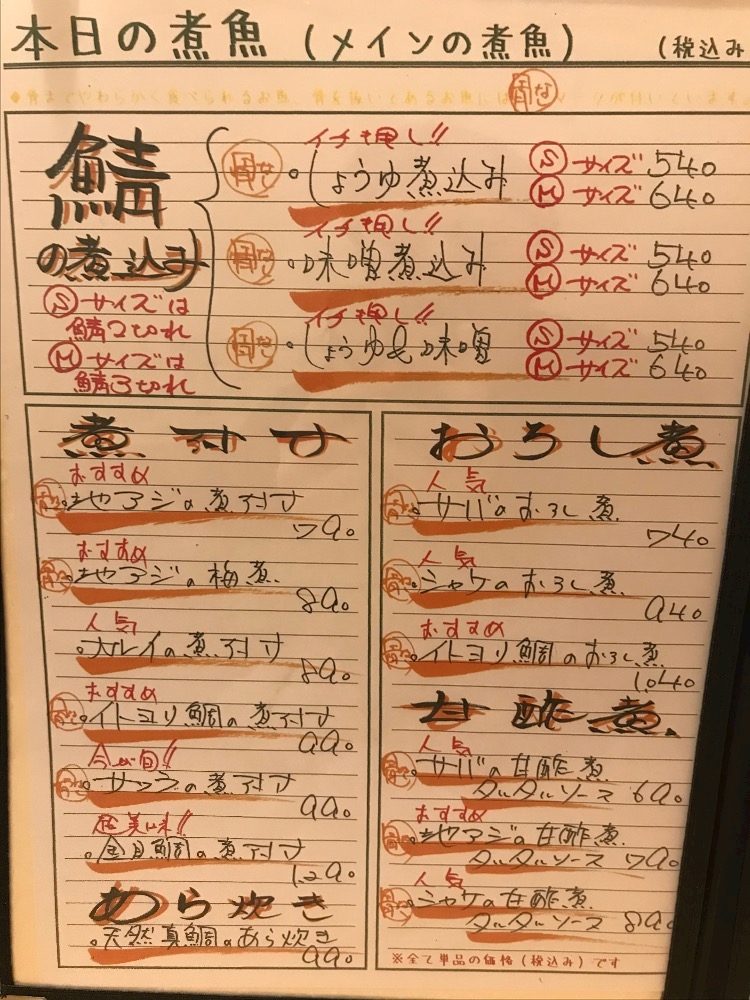 本日の煮魚 (メインの煮魚) (税込み
鯖
の煮込み
Ⓢサイズは
鯖2つ切れ
Ⓜサイズは
鯖3つ切れ
イチ押し!!
骨なし ・しょうゆ煮込み Ⓢサイズ 540
Ⓜサイズ 640
イチ押し!!
骨なし ・味噌煮込み Ⓢサイズ 540
Ⓜサイズ 640
イチ押し!!
骨なし ・しょうゆ&味噌 Ⓢサイズ 540
Ⓜサイズ 640
煮付け
おすすめ
骨なし 。地アジの煮付け
790
おすすめ
骨なし 。地アジの梅煮
890
人気
。カレイの煮付け
890
おすすめ
骨なし 。イトヨリ鯛の煮付け
990
今が旬!!
骨なし 。サワラの煮付け
990
超美味!!
。金目鯛の煮付け
1,290
あら炊き
。天然真鯛のあら炊き
990
おろし煮
人気
骨なし 。サバのおろし煮
740
人気
骨なし 。シャケのおろし煮
940
おすすめ
骨なし 。イトヨリ鯛のおろし煮
1,040
甘酢煮
人気
骨なし 。サバの甘酢煮
タルタルソース 690
おすすめ
骨なし 。地アジの甘酢煮
タルタルソース 790
人気
骨なし 。シャケの甘酢煮
タルタルソース 890
※全て単品の価格(税込み)です